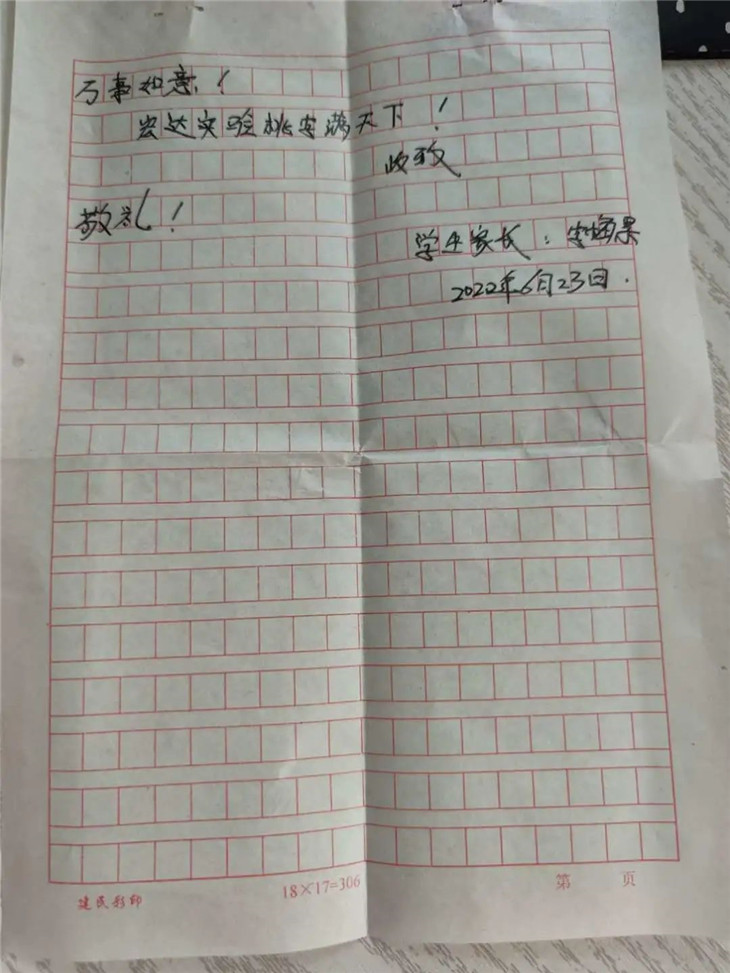 万事如意！
宏达实验桃李满天下！
此致
敬礼！
学生家长：李
2022年6月23日.
建民彩印
18×17=306
第 页